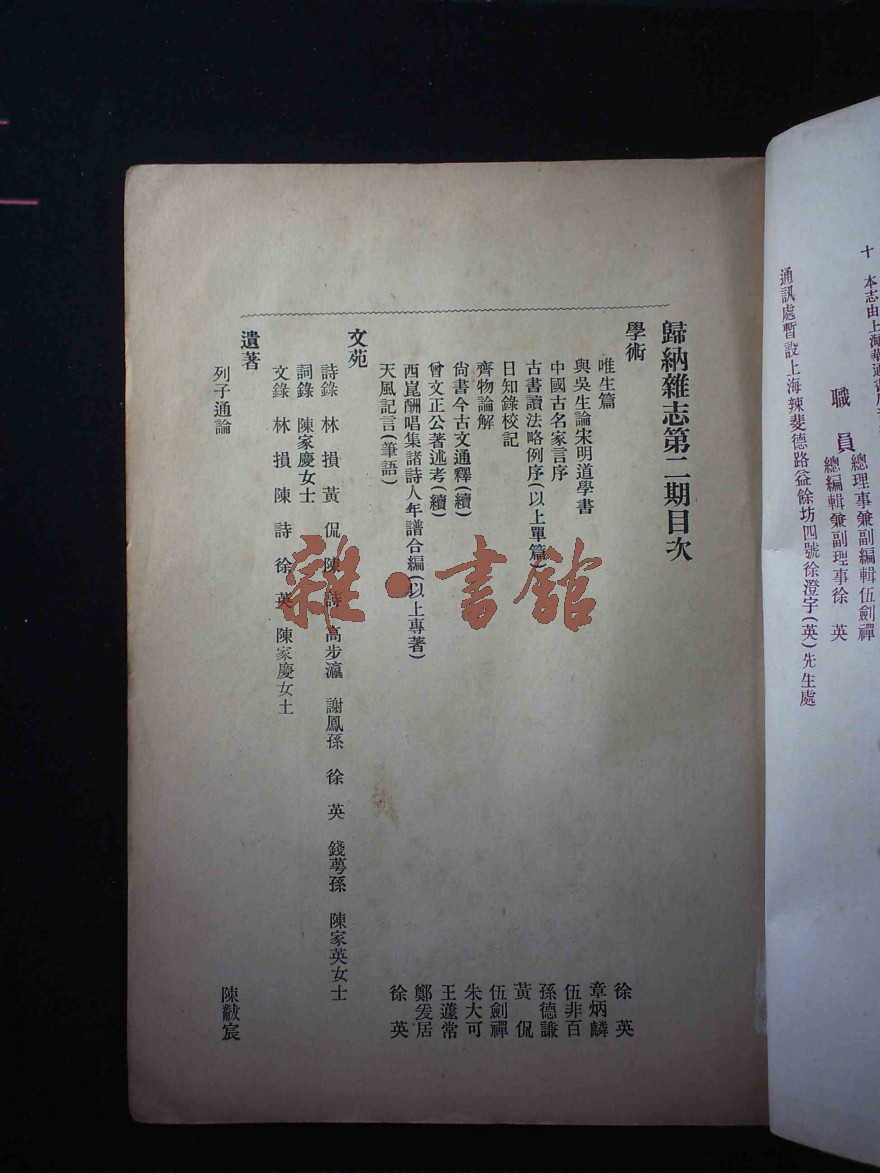 十　本志由上海華通書局
職員
總理事兼副編輯伍劍禪
總編輯兼副理事徐　英
通訊處暫設上海辣斐德路益餘坊四號徐澄宇(英)先生處
歸納雜志第二期目次
學術
唯生篇　徐　英
與吳生論宋明道學書　章炳麟
中國古名家言序　伍非百
古書讀法略例序(以上單篇)　孫德謙
日知錄校記　黃　侃
齊物論解　伍劍禪
尙書今古文通釋(續)　朱大可
曾文正公著述考(續)　王蘧常
西崑酬唱集諸詩人年譜合編(以上專著)　鄭爰居
天風記言(筆語)　徐　英
文苑
詩錄　林　損　黃　侃　陳　詩　高步瀛　謝鳳孫　徐　英　錢萼孫　陳家英女士
詞錄　陳家慶女士
文錄　林　損　陳　詩　徐　英　陳家慶女士
遺著
列子通論　陳黻宸
雜·書館